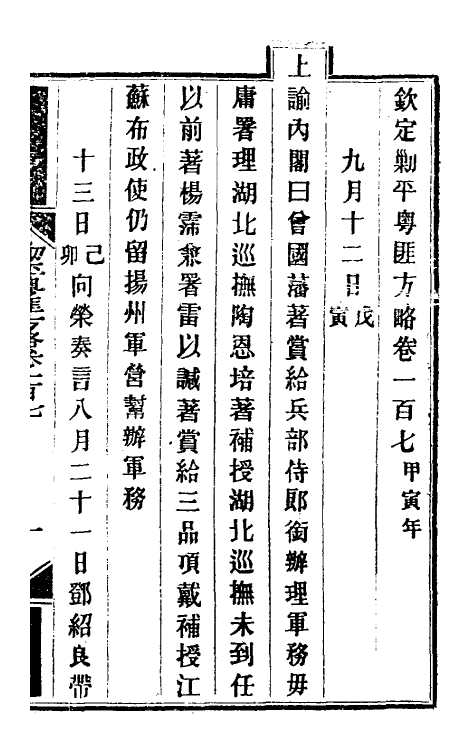 欽定剿平粵匪方略卷一百七甲寅年
九月十二日戊寅
上諭內閣曰曾國藩著賞給兵部侍郎銜辦理軍務毋
庸署理湖北巡撫陶恩培著補授湖北巡撫未到任
以前著楊霈兼署雷以諴著賞給三品頂戴補授江
蘇布政使仍留揚州軍營幫辦軍務
十三日己卯向榮奏言八月二十一日鄧紹良帶
一